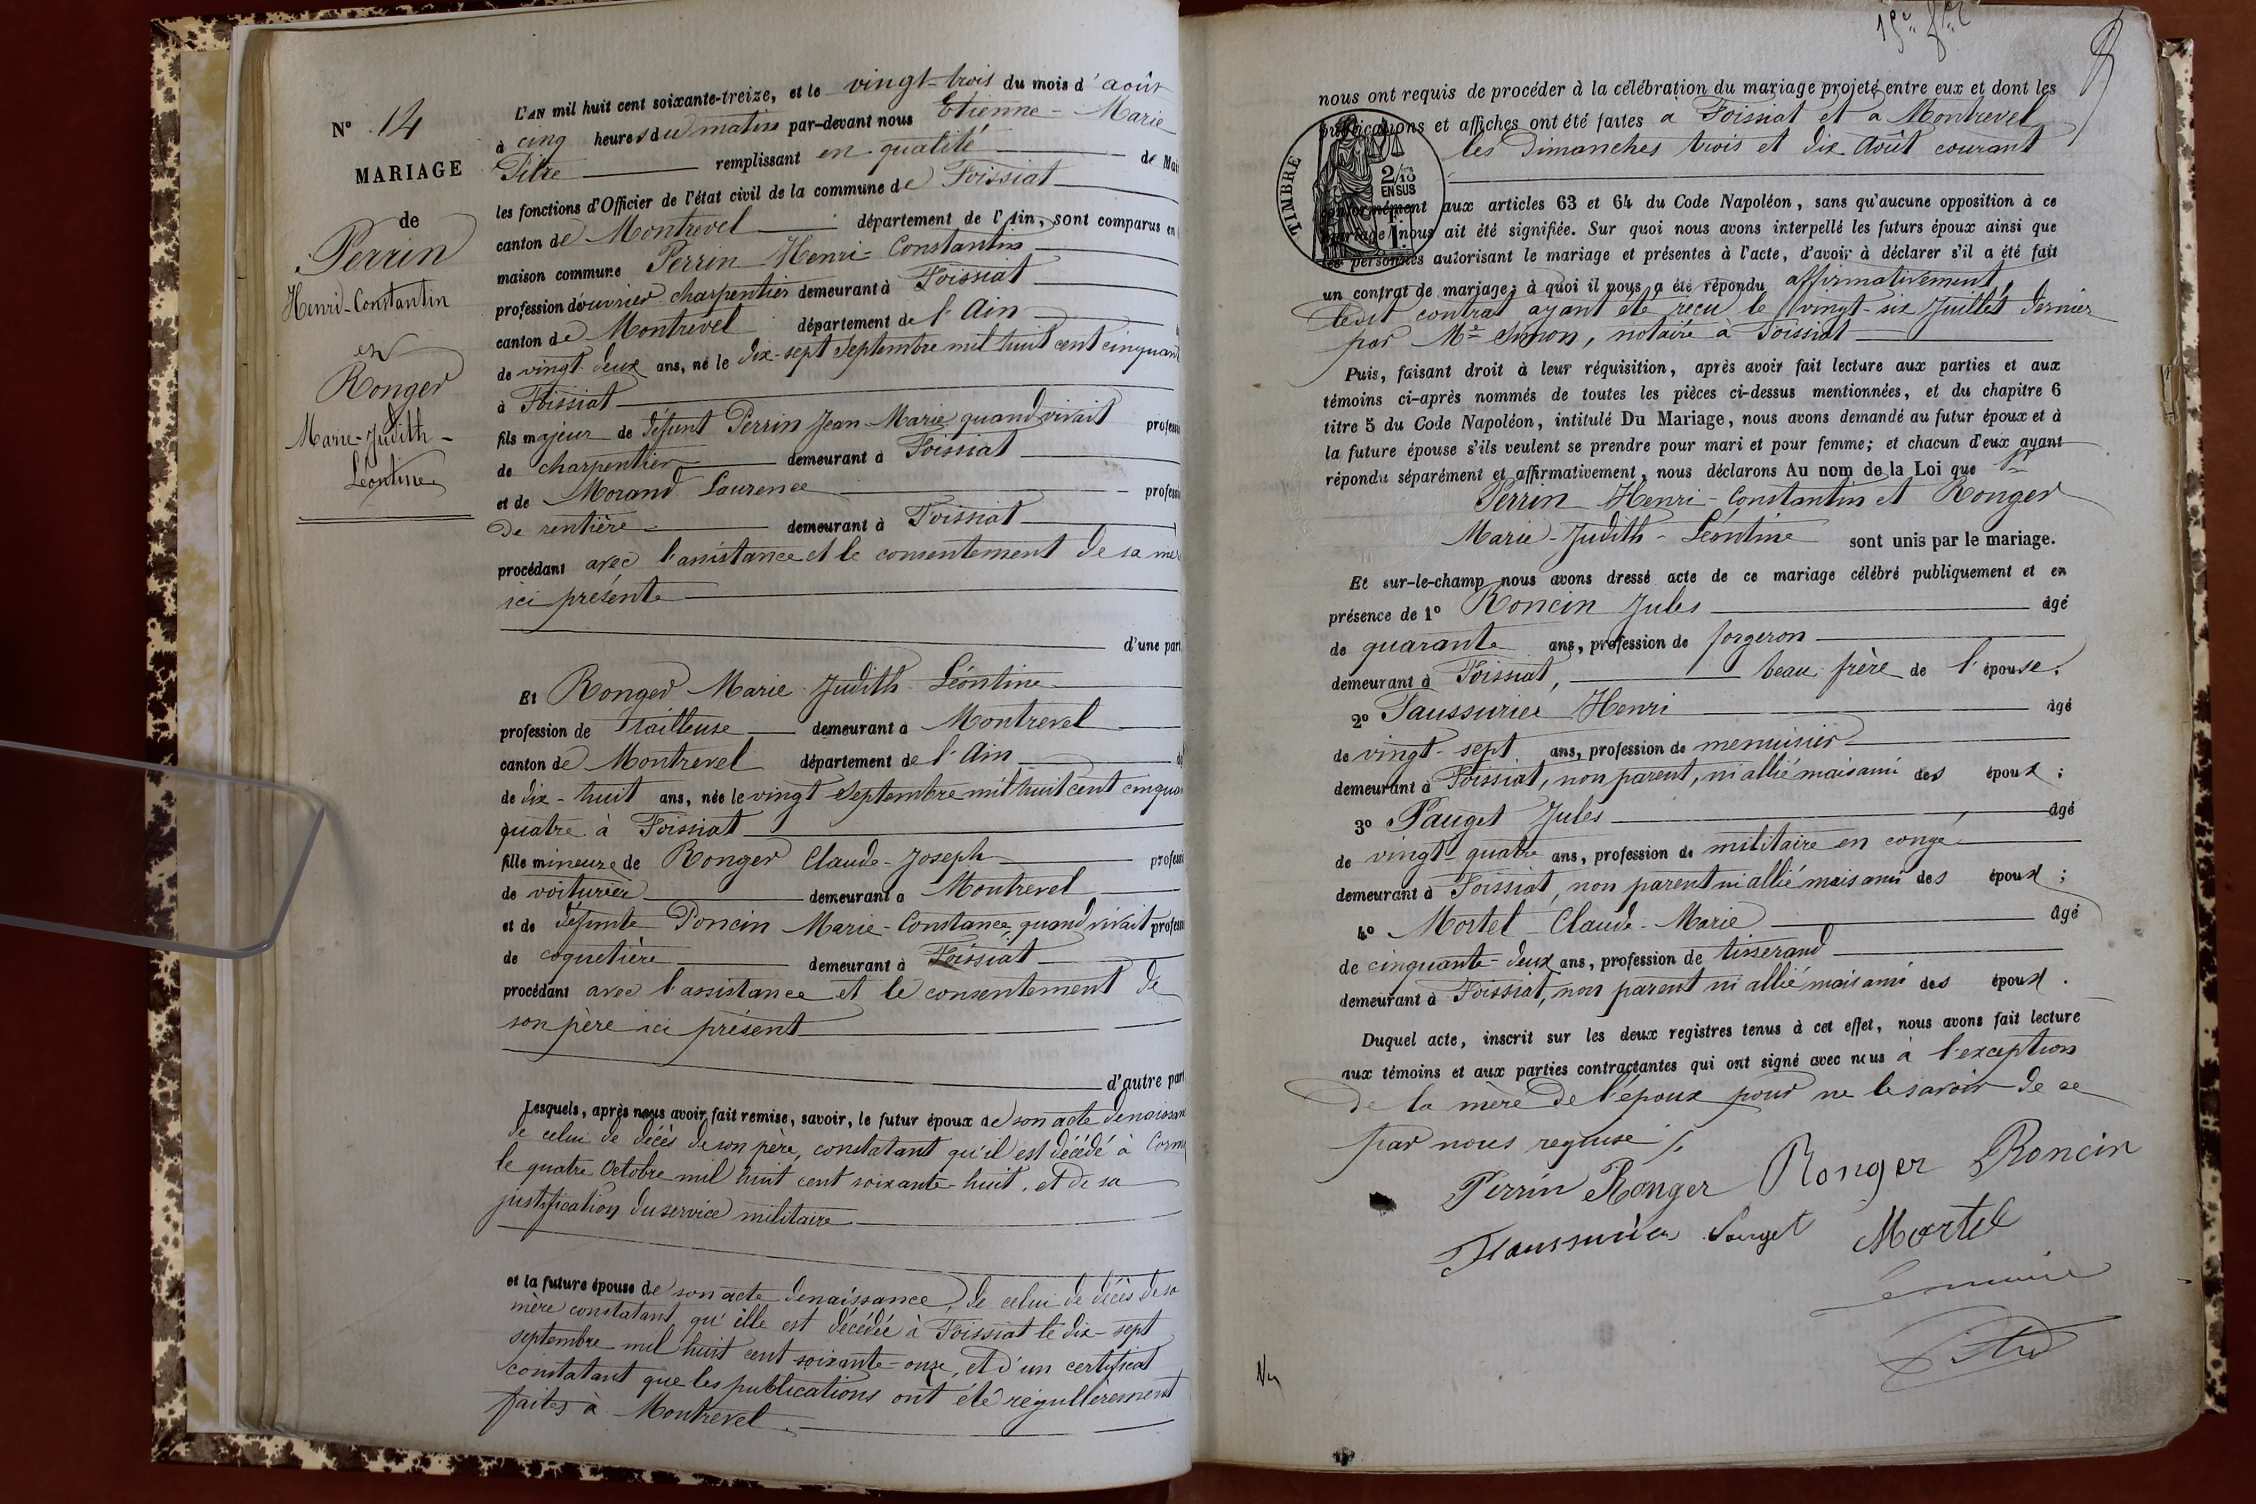 N° 14
MARIAGE
de
Perrin
Henri-Constantin
et
Ronger
Marie-Judith-
Léontine
L'AN mil huit cent soixante-treize, et le vingt-trois du mois d'août
à cinq heures du matin par-devant nous Etienne-Marie
Pitre remplissant en qualité de Mai
les fonctions d'Officier de l'état civil de la commune de Foissiat
canton de Montrevel département de l'Ain, sont comparus en
maison commune Perrin Henri-Constantin
profession d'ouvrier charpentier demeurant à Foissiat
canton de Montrevel département de l'Ain
de vingt-deux ans, né le dix-sept Septembre mil huit cent cinquant
à Foissiat
fils majeur de défunt Perrin Jean-Marie quand vivait profess
de charpentier demeurant à Foissiat
et de Morand Laurence professi
de rentière demeurant à Foissiat
procédant avec l'assistance et le consentement de sa mère
ici présente
d'une part
Et Ronger Marie Judith Léontine
profession de tailleuse demeurant à Montrevel
canton de Montrevel département de l'Ain
de dix-huit ans, née le vingt Septembre mil huit cent cinquan
quatre à Foissiat
fille mineure de Ronger Claude-Joseph professi
de voiturier demeurant à Montrevel
et de défunte Poncin Marie-Constance quand vivait profess
de coquetière demeurant à Foissiat
procédant avec l'assistance et le consentement de
son père ici présent
d'autre part
Lesquels, après nous avoir fait remise, savoir, le futur époux de son acte de naissan
de celui de décès de son père, constatant qu'il est décédé à
le quatre Octobre mil huit cent soixante-huit, et de sa
justification du service militaire
et la future épouse de son acte de naissance, de celui de décès de sa
mère constatant qu'elle est décédée à Foissiat le dix-sept
septembre mil huit cent soixante-onze, et d'un certificat
constatant que les publications ont été régulièrement
faites à Montrevel.
nous ont requis de procéder à la célébration du mariage projeté entre eux et dont les
publications et affiches ont été faites à Foissiat et à Montrevel
les Dimanches trois et dix Août courant
TIMBRE
2/10
EN SUS
1F.
conformément aux articles 63 et 64 du Code Napoléon, sans qu'aucune opposition à ce
mariage nous ait été signifiée. Sur quoi nous avons interpellé les futurs époux ainsi que
les personnes autorisant le mariage et présentes à l'acte, d'avoir à déclarer s'il a été fait
un contrat de mariage; à quoi il nous a été répondu affirmativement,
ledit contrat ayant été reçu le vingt-six Juillet dernier
par Me Simon, notaire à Foissiat
Puis, faisant droit à leur réquisition, après avoir fait lecture aux parties et aux
témoins ci-après nommés de toutes les pièces ci-dessus mentionnées, et du chapitre 6
titre 5 du Code Napoléon, intitulé Du Mariage, nous avons demandé au futur époux et à
la future épouse s'ils veulent se prendre pour mari et pour femme; et chacun d'eux ayant
répondu séparément et affirmativement, nous déclarons Au nom de la Loi que
Perrin Henri-Constantin et Ronger
Marie-Judith-Léontine sont unis par le mariage.
Et sur-le-champ nous avons dressé acte de ce mariage célébré publiquement et en
présence de 1° Roncin Jules âgé
de quarante ans, profession de forgeron
demeurant à Foissiat, beau frère de l'épouse.
2° Faussurier Henri âgé
de vingt-sept ans, profession de menuisier
demeurant à Foissiat, non parent, ni allié mais ami des époux;
3° Pauget Jules âgé
de vingt-quatre ans, profession de militaire en congé
demeurant à Foissiat, non parent ni allié mais ami des époux;
4° Mortel Claude-Marie âgé
de cinquante-deux ans, profession de tisserand
demeurant à Foissiat, non parent ni allié mais ami des époux.
Duquel acte, inscrit sur les deux registres tenus à cet effet, nous avons fait lecture
aux témoins et aux parties contractantes qui ont signé avec nous à l'exception
de la mère de l'époux pour ne le savoir de ce
par nous requise
Perrin Ronger Ronger Roncin
Faussurier Pauget Mortel
Le maire
Pitre